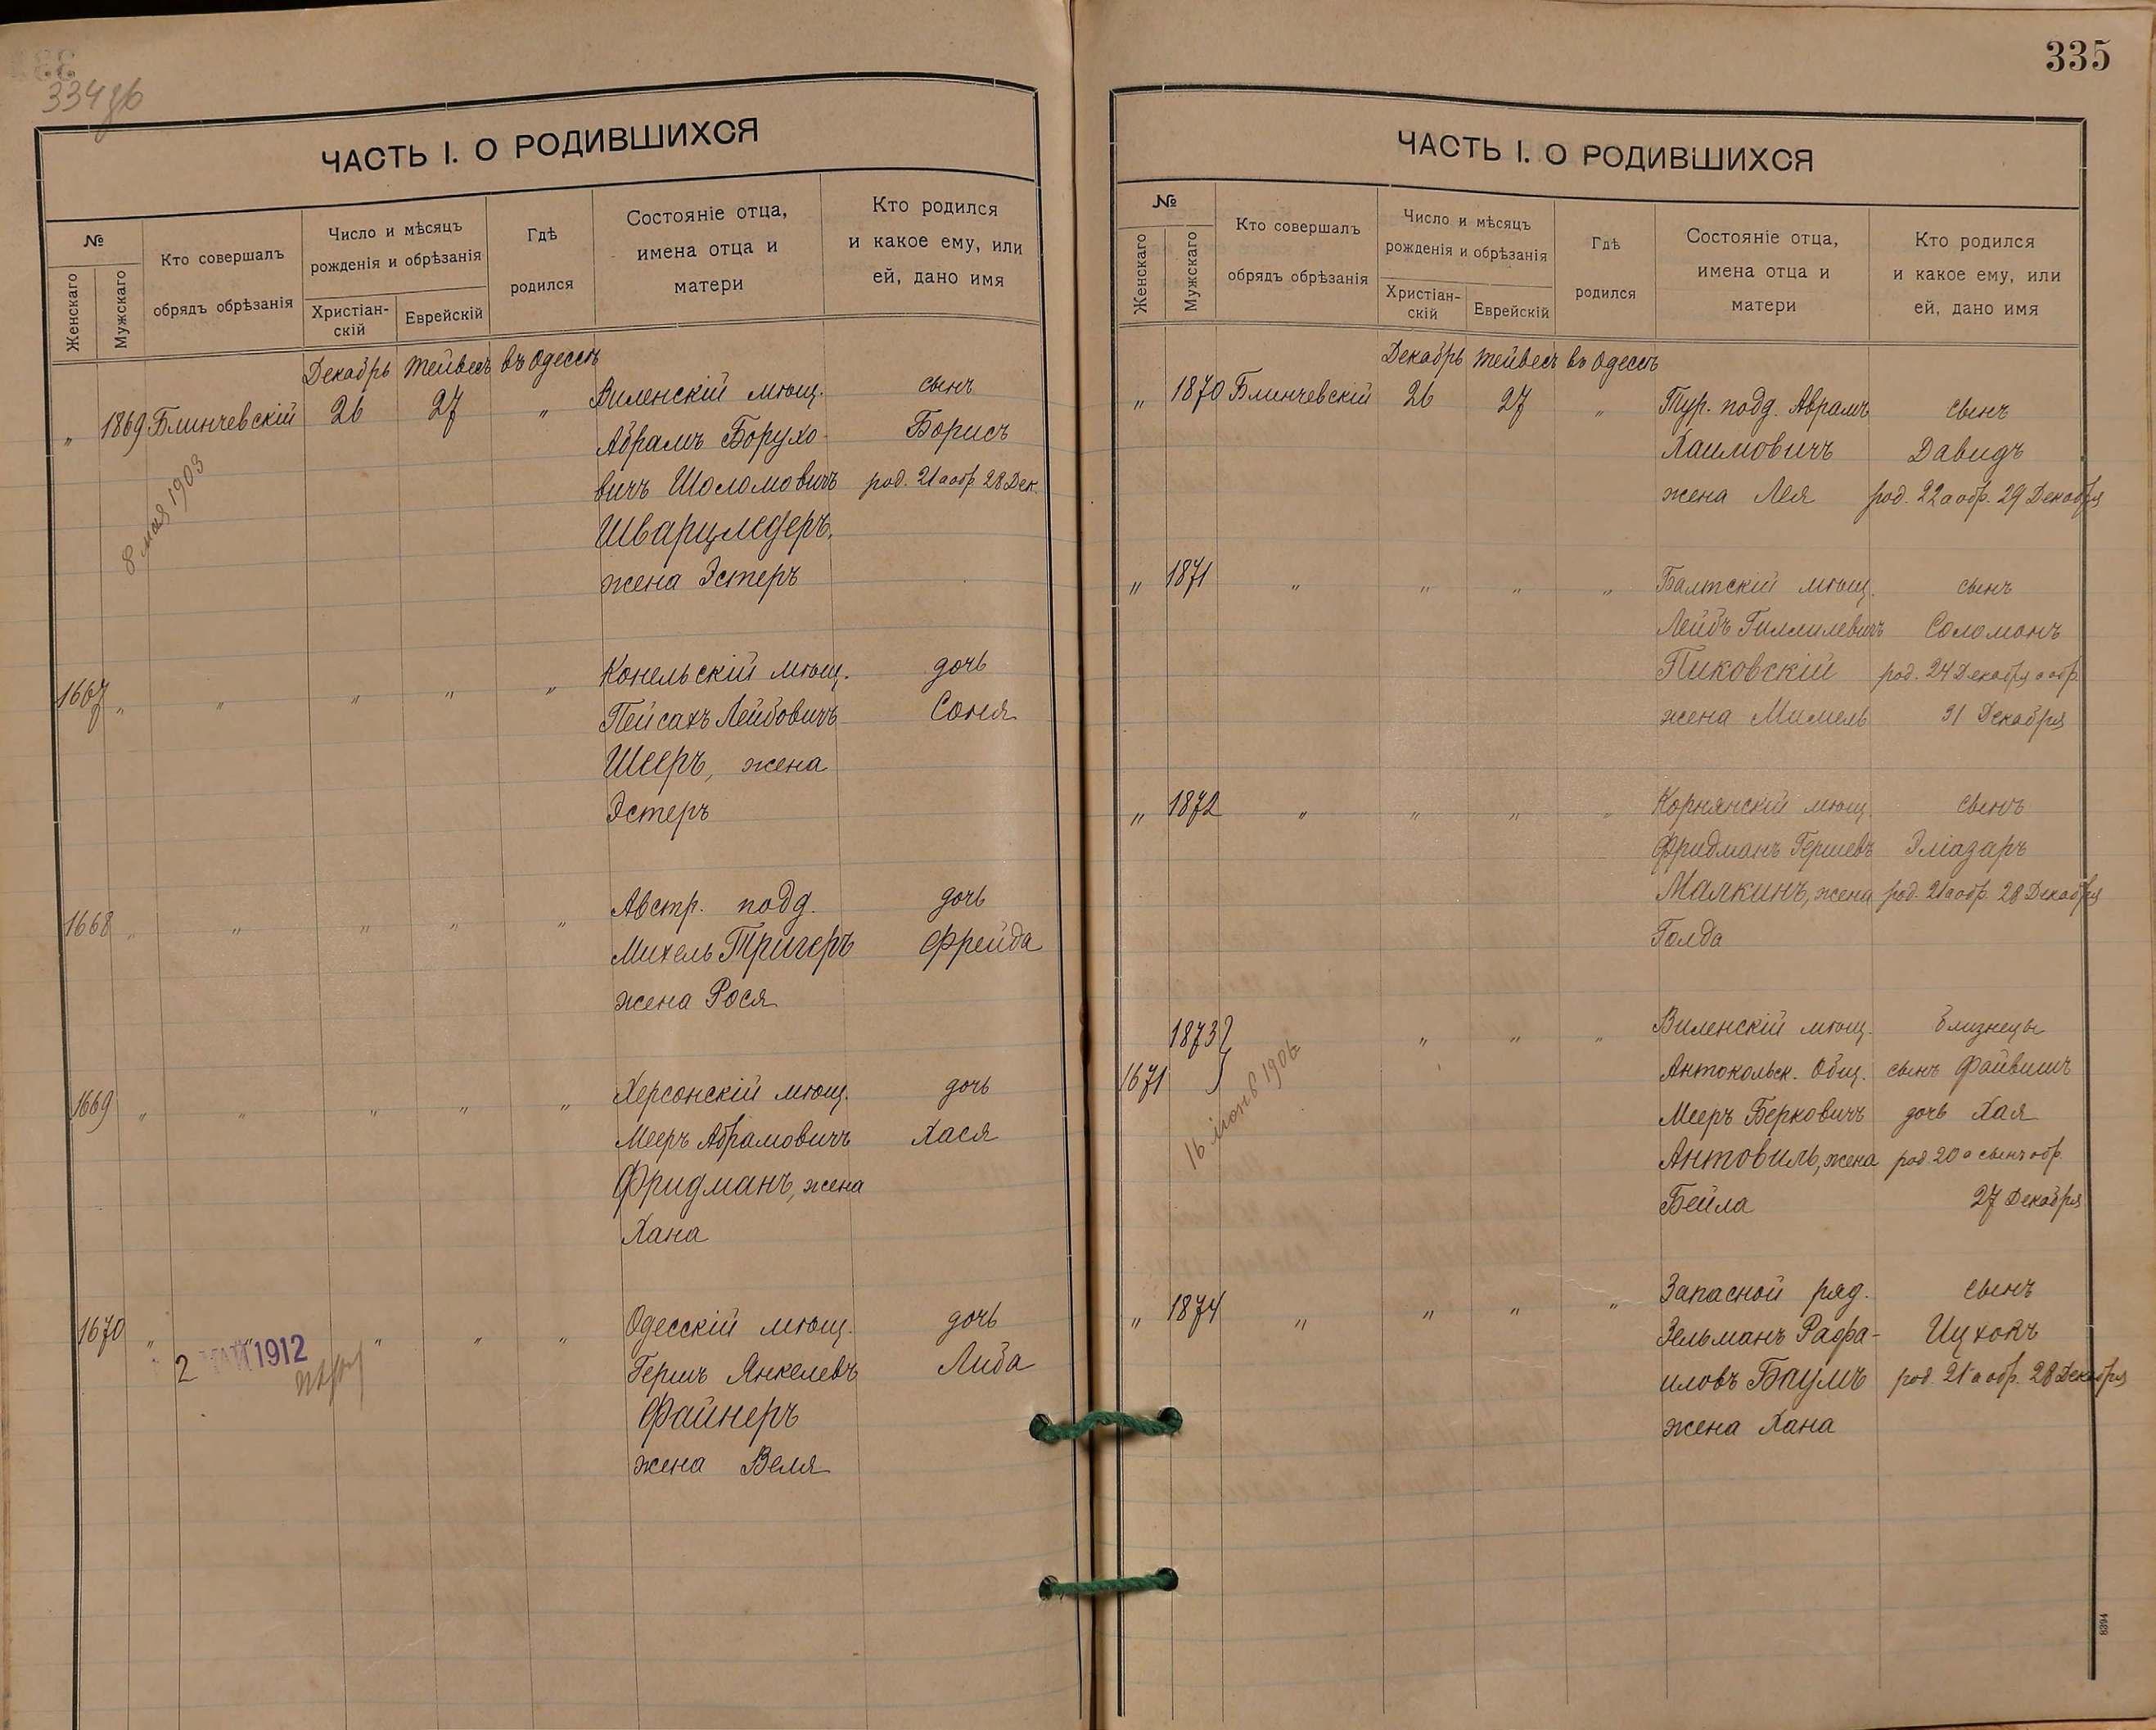 334 об
ЧАСТЬ I. О РОДИВШИХСЯ
№
Женскаго
Мужскаго
Кто совершалъ
обрядъ обрѣзанія
Число и мѣсяцъ
рожденія и обрѣзанія
Христіан-
скій
Еврейскій
Гдѣ
родился
Состояніе отца,
имена отца и
матери
Кто родился
и какое ему, или
ей, дано имя
Декабрь Тейвесъ въ Одессѣ
„ 1869 Блинчевскій 26 27 „ Виленскій мѣщ. сынъ
Абрамъ Борухо- Борисъ
вичъ Шоломовичъ род. 21 а обр 28 Дек.
Шварцледеръ,
жена Эстеръ
8 мая 1903
1667 „ „ „ „ „ Конельскій мѣщ. дочь
Пейсахъ Лейбовичъ Соня
Шееръ, жена
Эстеръ
1668 „ „ „ „ „ Австр. подд. дочь
Михель Тригеръ Фрейда
жена Рося
1669 „ „ „ „ „ Херсонскій мѣщ. дочь
Мееръ Абрамовичъ Хася
Фридманъ, жена
Хана
1670 „ „ „ „ „ Одесскій мѣщ. дочь
Гершъ Янкелевъ Либа
Файнеръ
жена Веля
2 МАЙ 1912
335
ЧАСТЬ I. О РОДИВШИХСЯ
№
Женскаго
Мужскаго
Кто совершалъ
обрядъ обрѣзанія
Число и мѣсяцъ
рожденія и обрѣзанія
Христіан-
скій
Еврейскій
Гдѣ
родился
Состояніе отца,
имена отца и
матери
Кто родился
и какое ему, или
ей, дано имя
Декабрь Тейвесъ въ Одессѣ
„ 1870 Блинчевскій 26 27 „ Тур. подд. Аврамъ сынъ
Хаимовичъ Давидъ
жена Лея род. 22 а обр. 29 Декабря
„ 1871 „ „ „ „ Балтскій мѣщ. сынъ
Лейбъ Гиллилевичъ Соломонъ
Пиковскій род. 24 Декабря а обр
жена Мимель 31 Декабря
„ 1872 „ „ „ „ Корнянскій мѣщ. сынъ
Фридманъ Гершевъ Эліазаръ
Малкинъ, жена род. 21 а обр. 28 Декабря
Голда
1873 } „ „ „ Виленскій мѣщ. близнецы
1671 Антокольск. Общ. сынъ Файвишъ
Мееръ Берковичъ дочь Хая
Антовиль, жена род. 20 а сынъ обр.
Бейла 27 Декабря
16 Июнь 1906
„ 1874 „ „ „ „ Запасной ряд. сынъ
Зельманъ Рафа- Ицхокъ
иловъ Баумъ род. 21 а обр. 28 Декабря
жена Хана
8394